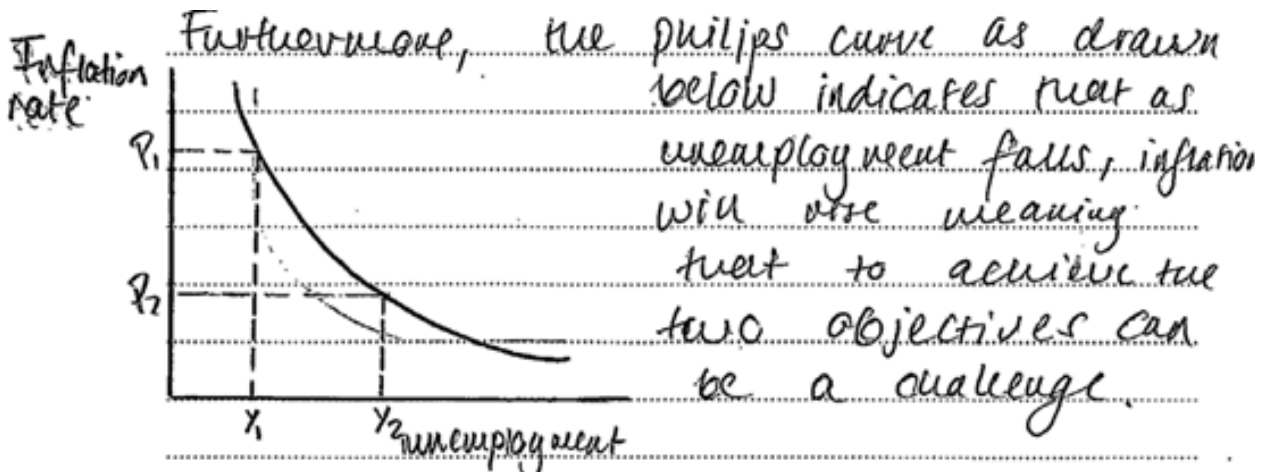 Furthermore, the philips curve as drawn
Inflation
rate
below indicates that as
P₁
unemployment falls, inflation
will rise meaning
that to achieve the
P₂
two objectives can
be a challenge.
Y₁ Y₂ unemployment